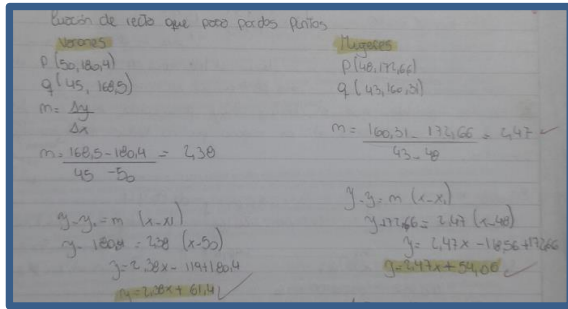 Ecuación de recta que pasa por dos puntos
Varones
P (50, 180,4)
q (45, 168,5)
m = Δy
Δx
m = 168,5 - 180,4 = 2,38
45 - 50
y - y₁ = m (x - x1)
y - 180,4 = 2,38 (x - 50)
y = 2,38x - 119 + 180,4
y = 2,38x + 61,4
Mugeres
P (48, 172,66)
q (43, 160,31)
m = 160,31 - 172,66 = 2,47
43 - 48
y - y₁ = m (x - x₁)
y - 172,66 = 2,47 (x - 48)
y = 2,47x - 118,56 + 172,66
y = 2,47x + 54,06